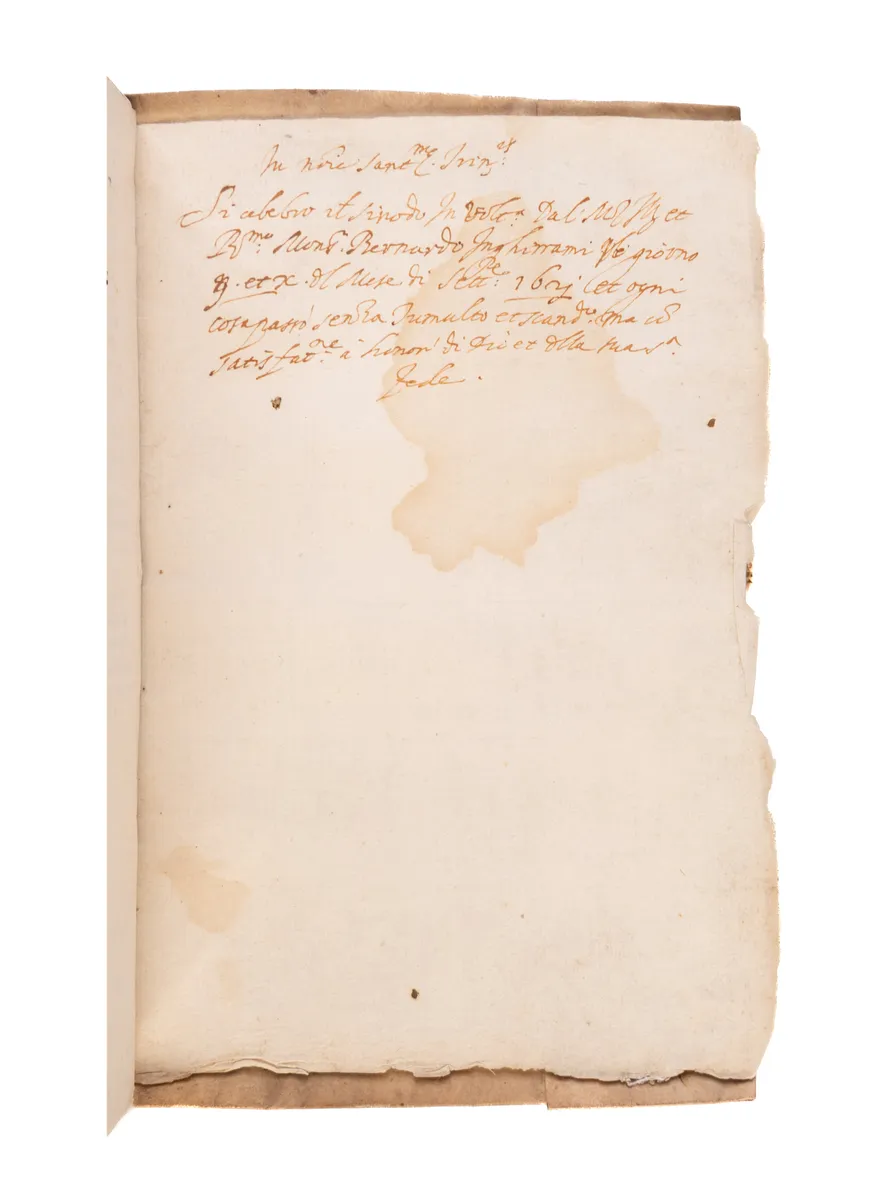 In nõie sant.me Trin.es
Si celebrò il sinodo In Volt.a Dal M et
R.mo Mons.r Bernardo Inghirrami giorno
et X. dl Mese di Sett.re 1621 et ogni
cosa passò senza Tumulto et scand.o ma cõ
satisfat.ne à honor di Dio et dlla sua s.a
fede.